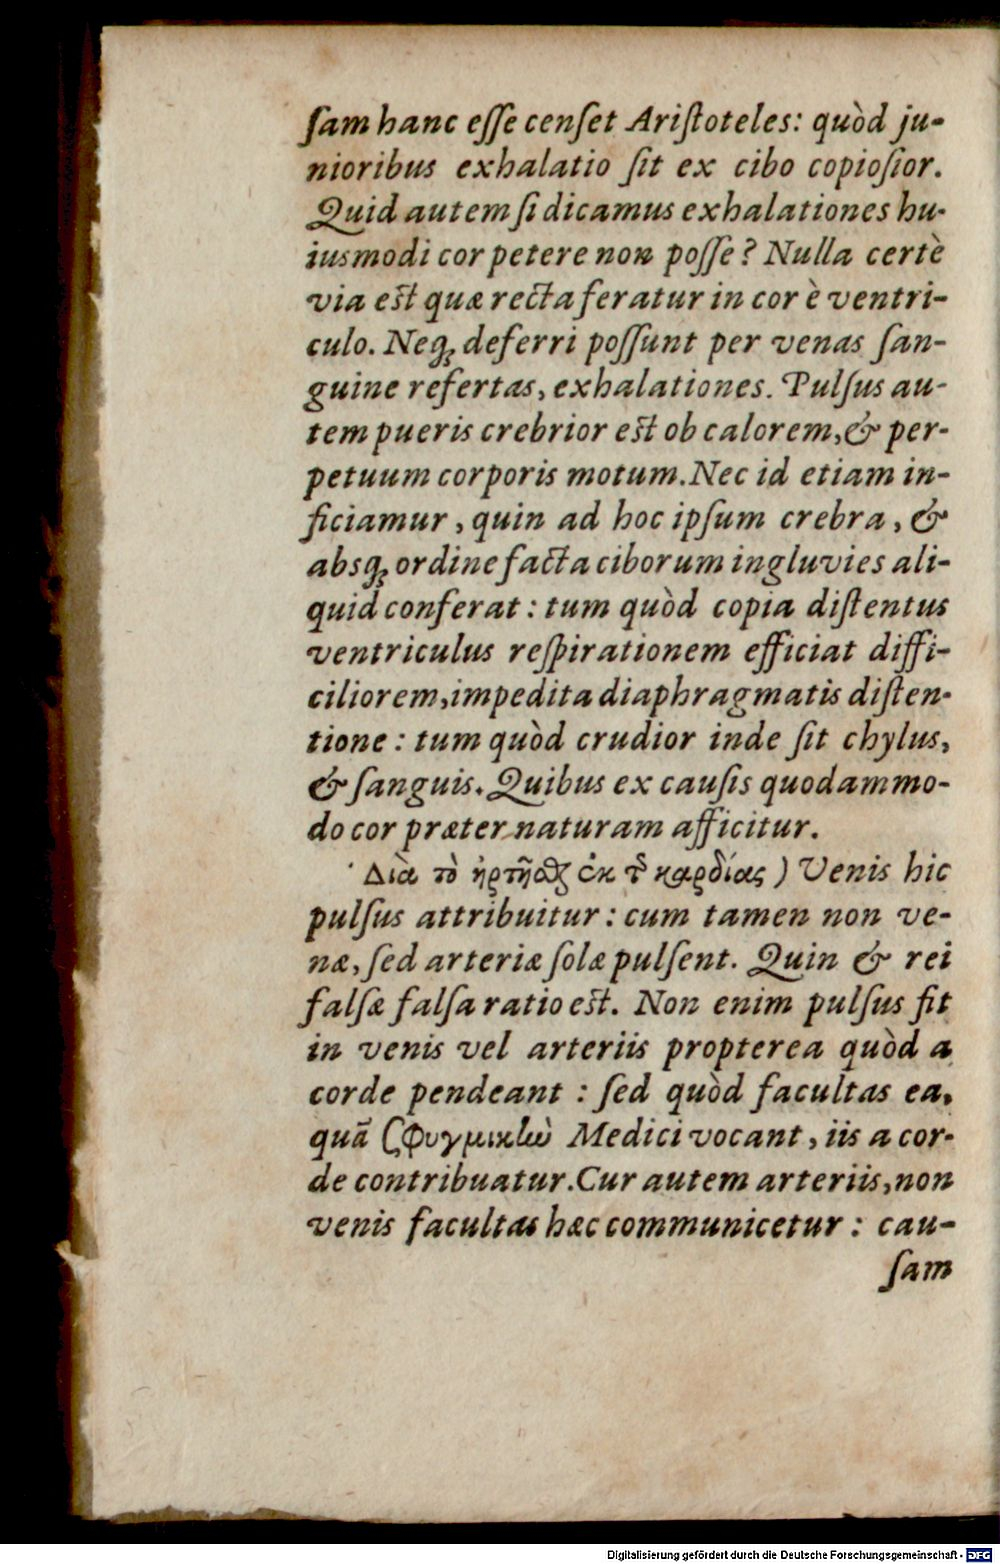 ſam hanc eſſe cenſet Ariſtoteles: quòd ju-
nioribus exhalatio ſit ex cibo copioſior.
Quid autem ſi dicamus exhalationes hu-
iusmodi cor petere non poſſe? Nulla certè
via eſt quæ recta feratur in cor è ventri-
culo. Neq̃ deferri poſſunt per venas ſan-
guine refertas, exhalationes. Pulſus au-
tem pueris crebrior eſt ob calorem, & per-
petuum corporis motum. Nec id etiam in-
ficiamur, quin ad hoc ipſum crebra, &
absq̃ ordine facta ciborum ingluvies ali-
quid conferat: tum quòd copia diſtentus
ventriculus reſpirationem efficiat diffi-
ciliorem, impedita diaphragmatis diſten-
tione: tum quòd crudior inde ſit chylus,
& ſanguis. Quibus ex cauſis quodammo-
do cor præter naturam afficitur.
Διὰ τὸ ἠρτῆσθαι ἐκ τῆς καρδίας) Venis hic
pulſus attribuitur: cum tamen non ve-
næ, ſed arteriæ ſolæ pulſent. Quin & rei
falſæ falſa ratio eſt. Non enim pulſus fit
in venis vel arteriis propterea quòd a
corde pendeant: ſed quòd facultas ea,
quã σφυγμικὴν Medici vocant, iis a cor-
de contribuatur. Cur autem arteriis, non
venis facultas hæc communicetur: cau-
ſam
Digitalisierung gefördert durch die Deutsche Forschungsgemeinschaft - DFG